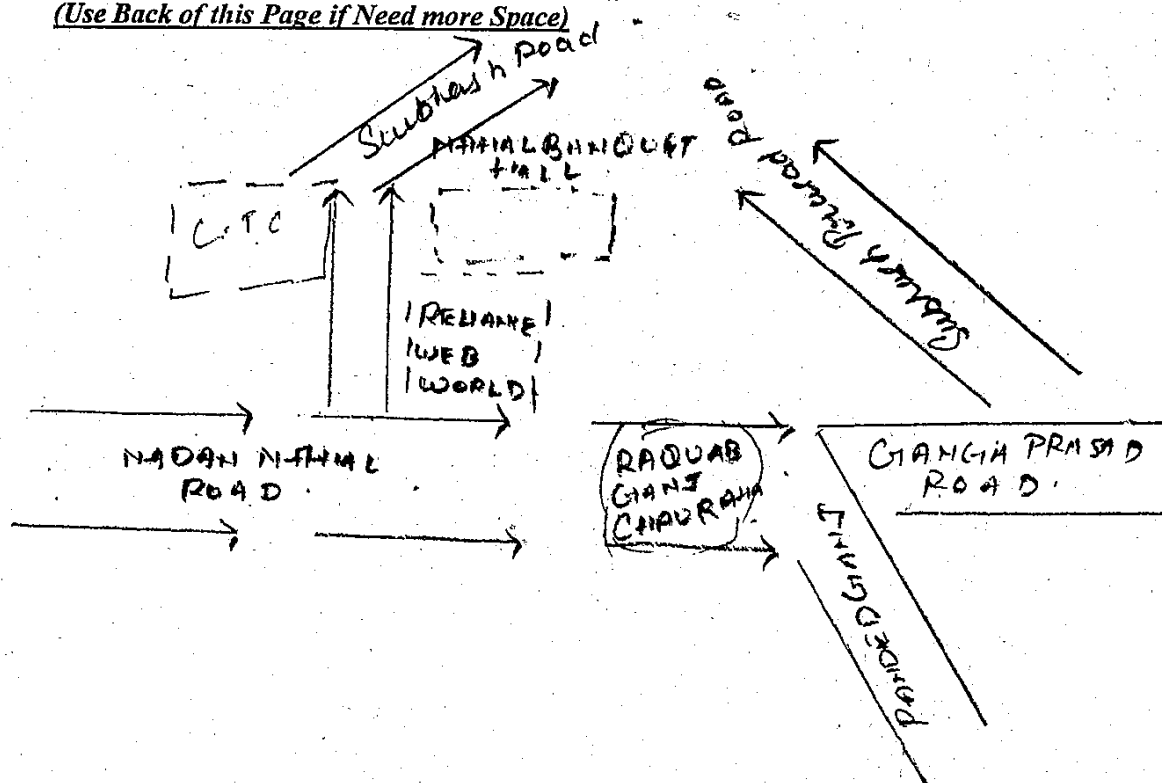 (Use Back of this Page if Need more Space)
Subhash Road
NAHAL BANQUET
HALL
C.T.C
RELIANCE
WEB
WORLD
NADAN MAHAL
ROAD.
RAQUAB
GANJ
CHAURAHA
GANGA PRASAD
ROAD.
Subhash Road
PANDEDGANJ